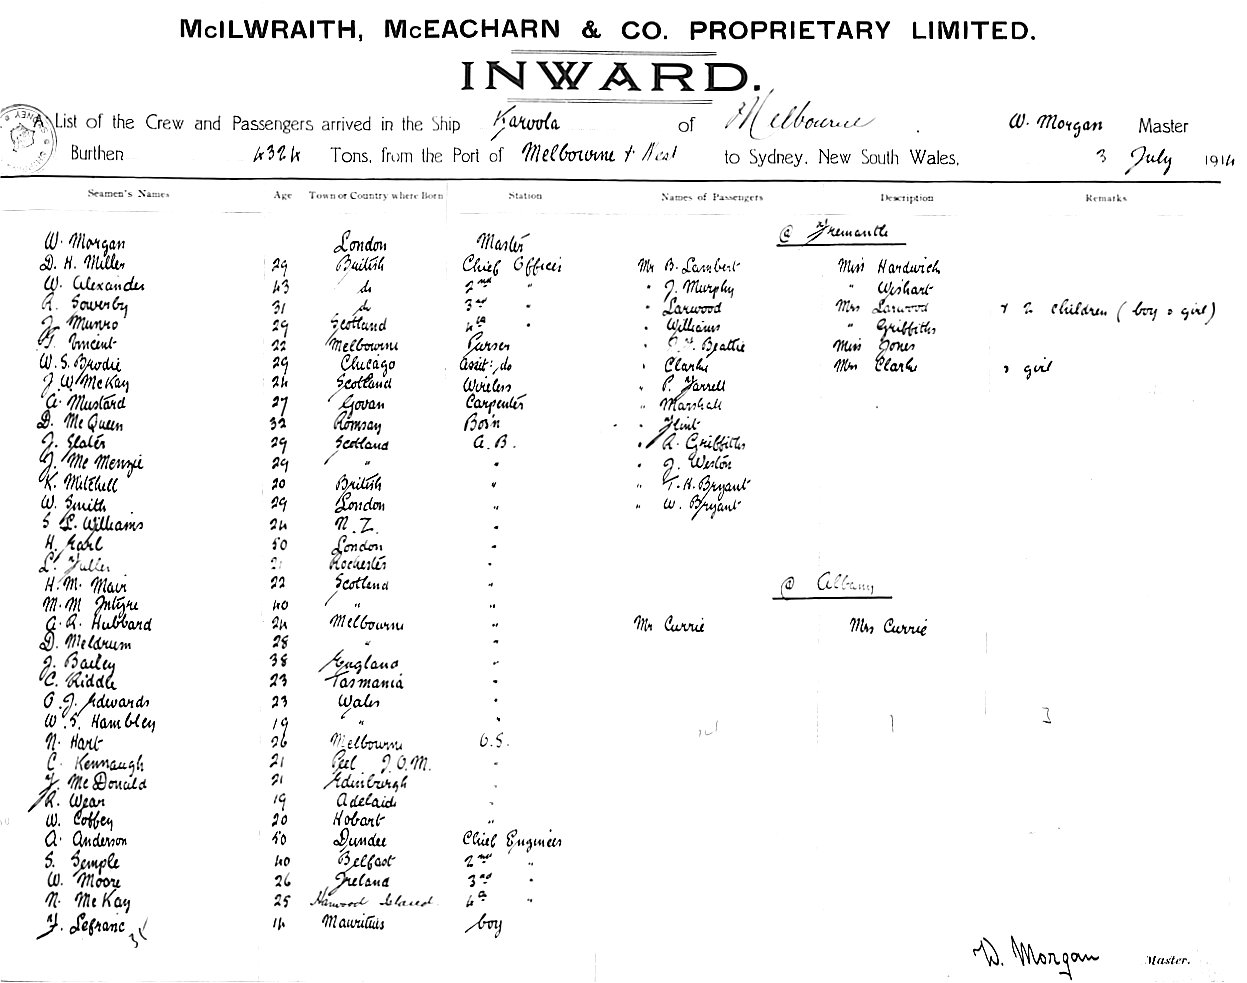 McILWRAITH, McEACHARN & CO. PROPRIETARY LIMITED.
INWARD.
A List of the Crew and Passengers arrived in the Ship Karoola of Melbourne. W. Morgan Master
Burthen 4324 Tons, from the Port of Melbourne & West to Sydney, New South Wales, 3 July 1914
Seamen's Names Age Town or Country where Born Station Names of Passengers Description Remarks
@ Fremantle
W. Morgan London Master
D. H. Miller 29 British Chief Officer Mr B. Lambert Miss Hardwich
W. Alexander 43 do 2nd " " J. Murphy " Wishart
R. Sowerby 31 do 3rd " " Larwood Mrs Larwood & 2 children (boy & girl)
J. Munro 29 Scotland 4th " " Williams " Griffiths
Vincent 22 Melbourne Purser " Beattie Miss Jones
W. S. Brodie 29 Chicago Asst: do " Clarke Mrs Clarke & girl
J. W. McKay 24 Scotland Wireless " P. Farrell
A. Mustard 27 Govan Carpenter " Marshall
D. McQueen 32 Romsay Bos'n " Flint
J. Slater 29 Scotland A.B. " R. Griffiths
J. McMenzie 29 " " " J. Weston
K. Mitchell 20 British " " T. H. Bryant
W. Smith 29 London " " W. Bryant
S. L. Williams 24 N.Z. "
H. Karl 50 London "
L. Fuller 21 Rochester "
H. M. Mair 22 Scotland "
@ Albany
M. M Intyre 40 " "
G. R. Hubbard 24 Melbourne " Mr Currie Mrs Currie
D. Meldrum 28 " "
J. Bailey 38 England "
C. Riddle 23 Tasmania "
O. J. Edwards 23 Wales "
W. S. Hambley 19 " "
1 3
N. Hart 26 Melbourne O.S.
C. Kennaugh 21 Peel I.O.M. "
F. McDonald 21 Edinburgh "
R. Wear 19 Adelaide "
W. Coffey 20 Hobart "
A. Anderson 50 Dundee Chief Engineer
S. Semple 40 Belfast 2nd "
W. Moore 26 Ireland 3rd "
N. McKay 25 4th "
F. Lefranc 14 Mauritius boy
W. Morgan Master.